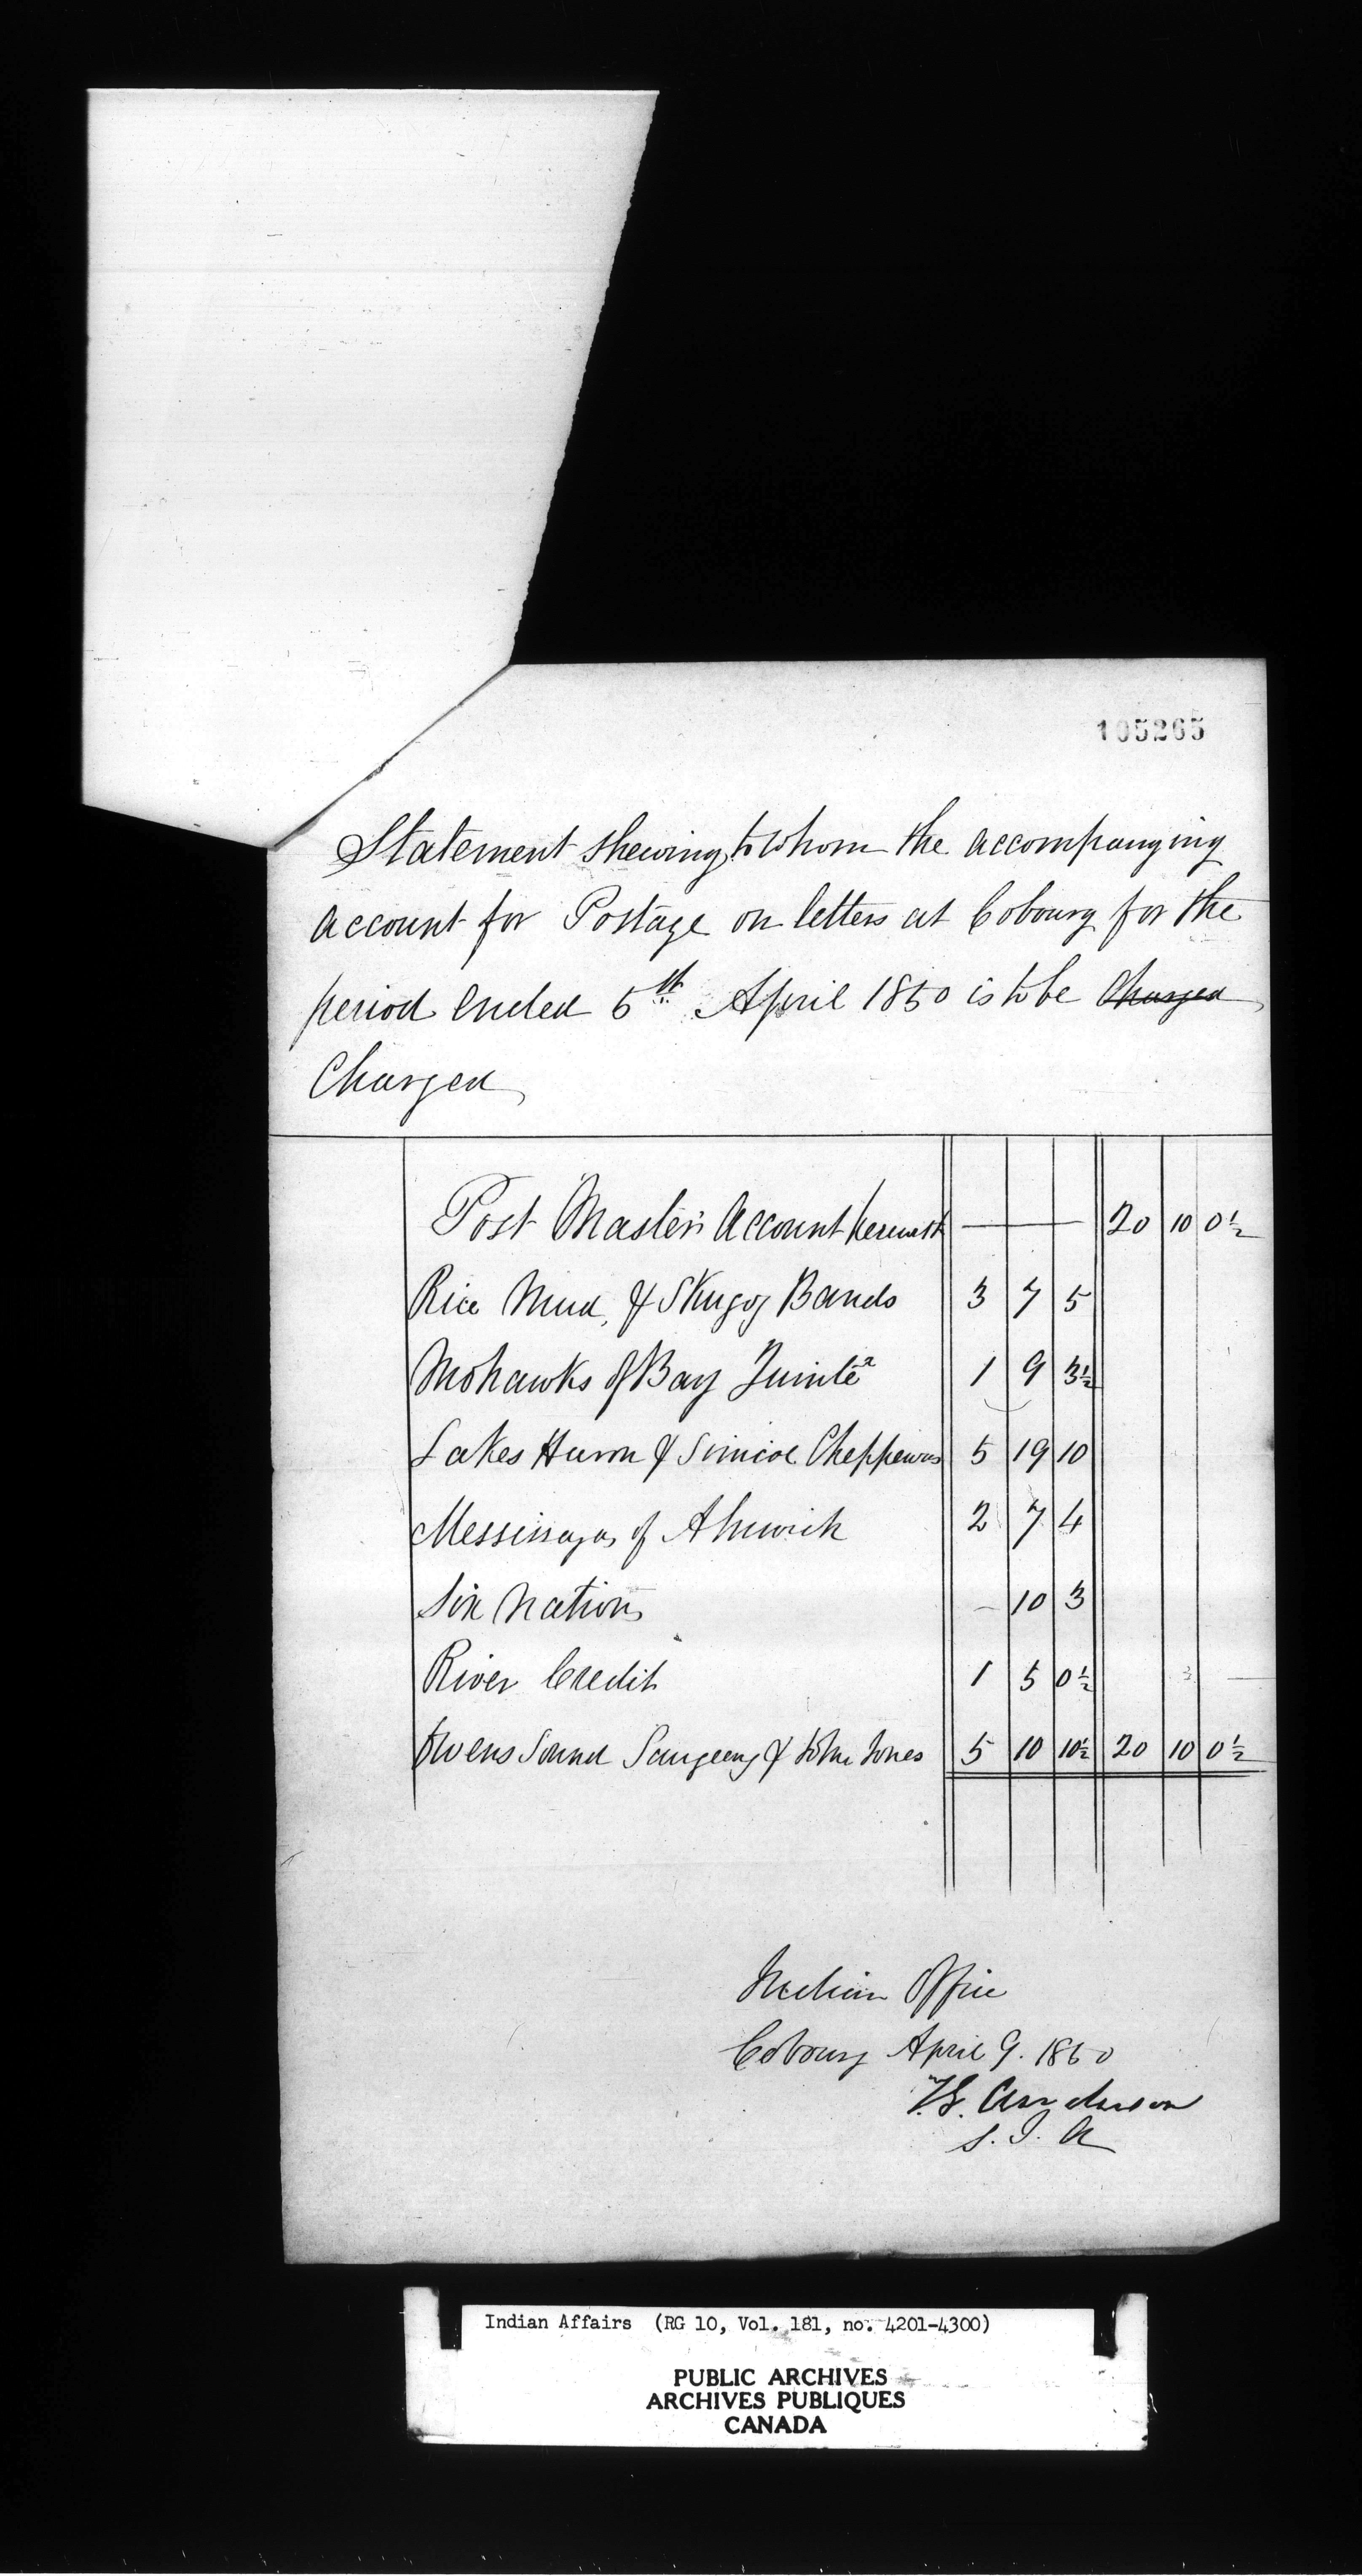 105265
Statement shewing to whom the accompanying
account for Postage on letters at Cobourg for the
period ended 5th April 1850 is to be Charged
Charged
Post Masters Account herewith — 20 10 0½
Rice Mud, & Skugog Bands 3 7 5
Mohawks of Bay Quinté 1 9 3½
Lakes Huron & Simcoe Cheppewas 5 19 10
Messissagas of Alnwick 2 7 4
Six Nations – 10 3
River Credit 1 5 0½
Owens Sound Saugeeng & John Jones 5 10 10½ 20 10 0½
Indian Office
Cobourg April 9. 1850
T.G. Anderson
S. I. A
Indian Affairs (RG 10, Vol. 181, no. 4201-4300)
PUBLIC ARCHIVES
ARCHIVES PUBLIQUES
CANADA